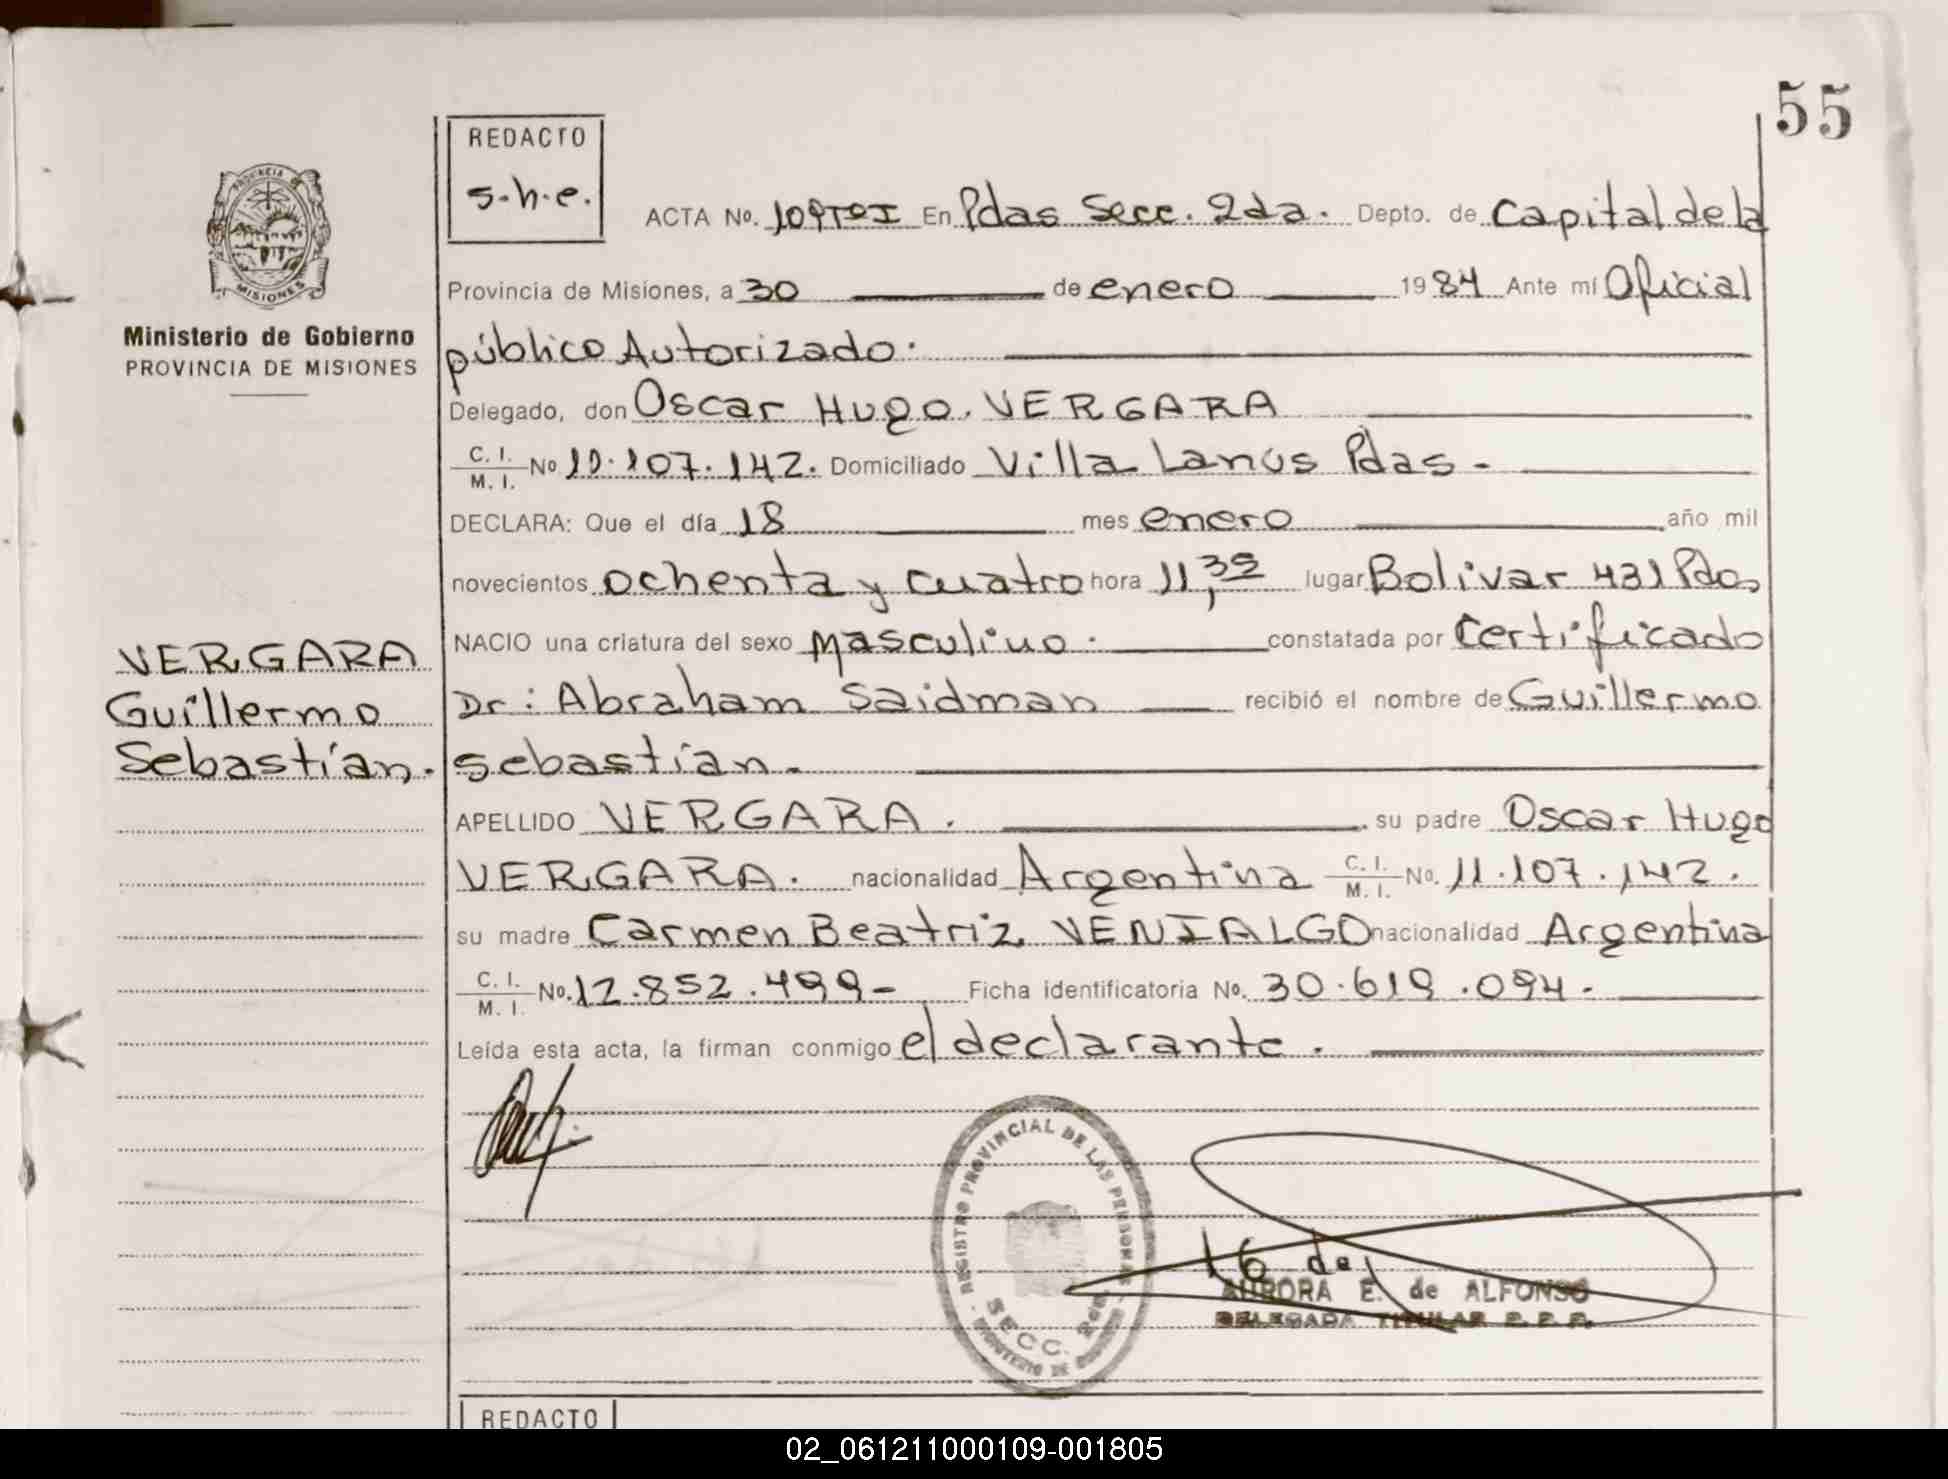 55
REDACTO
s.h.e.
PROVINCIA DE
MISIONES
Ministerio de Gobierno
PROVINCIA DE MISIONES
ACTA No. 109TºI En Pdas Secc. 2da. Depto. de Capital de la
Provincia de Misiones, a 30 de enero 1984 Ante mí Oficial
público Autorizado.
Delegado, don Oscar Hugo. VERGARA
C. I. / M. I. No 11.107.142. Domiciliado Villa Lanús Pdas -
DECLARA: Que el día 18 mes enero año mil
novecientos ochenta y cuatro hora 11,30 lugar Bolivar 431 Pdas
NACIO una criatura del sexo Masculino. constatada por Certificado
Dr: Abraham Saidman recibió el nombre de Guillermo
sebastían.
VERGARA
Guillermo
Sebastían.
APELLIDO VERGARA. su padre Oscar Hugo
VERGARA. nacionalidad Argentina C. I. / M. I. No. 11.107.142.
su madre Carmen Beatriz VENIALGO nacionalidad Argentina
C. I. / M. I. No. 12.852.499- Ficha identificatoria No. 30.619.094.
Leída esta acta, la firman conmigo el declarante.
REGISTRO PROVINCIAL DE LAS PERSONAS
SECC. 2da.
MINISTERIO DE GOBIERNO
AURORA E. de ALFONSO
DELEGADA TITULAR R. P. P.
REDACTO
02_061211000109-001805